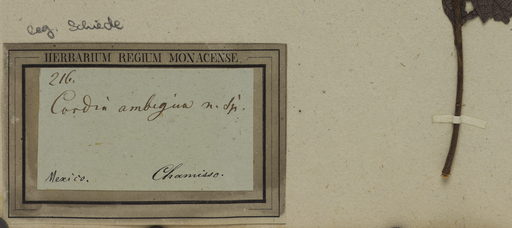 leg. Schiede
HERBARIUM REGIUM MONACENSE.
216.
Cordia ambigua n. sp.
Mexico. Chamisso.